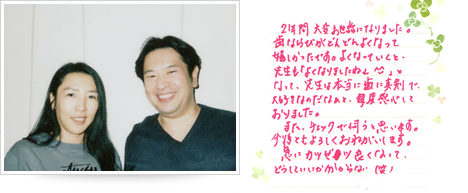 2年間 大変お世話になりました。
歯ならびがどんどんよくなって
嬉しかったです。よくなっていくと、
先生も「よくなりましたねぇ^^」と
なって、先生は本当に歯に真剣で、
大好きなのだなぁと、毎度感心して
おりました。
また、チェックで伺うと思います。
今後ともよろしくおねがいします。
急にカツゼツが良くなって、
どうしていいかわからない(笑)
STUSSY